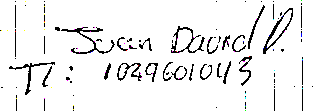 Juan David P.
TI: 1039601043